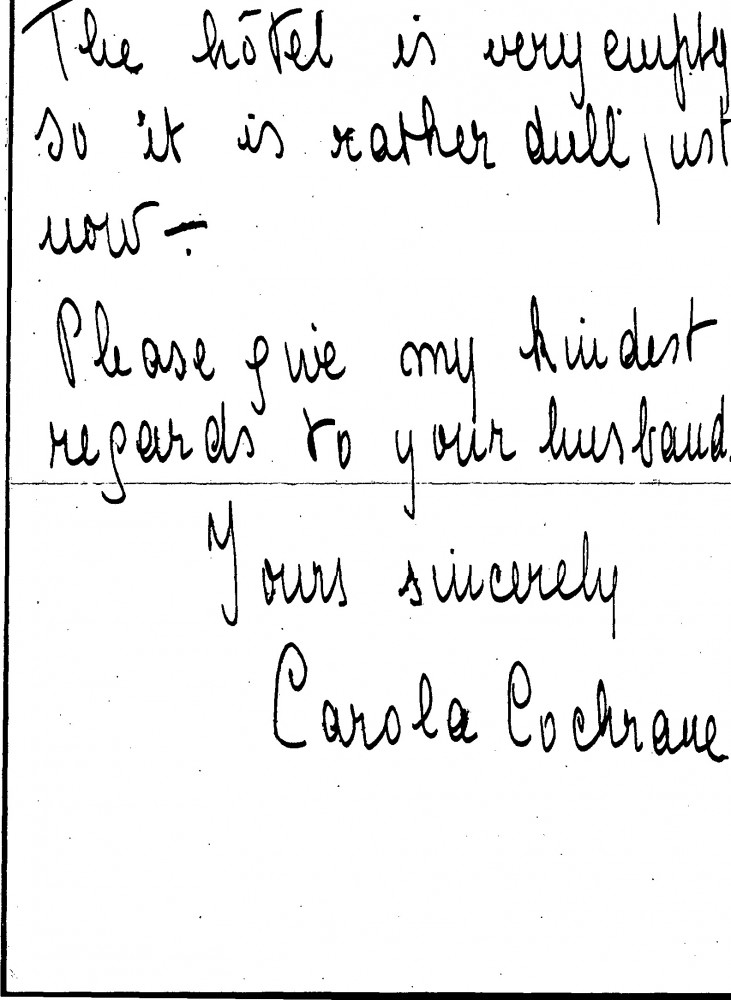 The hôtel is very empty
so it is rather dull just
now –
Please give my kindest
regards to your husband.
Yours sincerely
Carola Cochrane